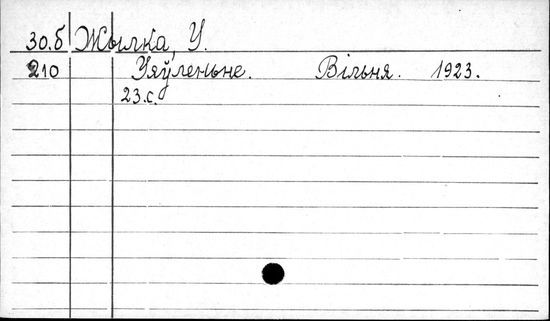 30.б Жылка, У.
210 Уяўленьне. Вільня. 1923.
23.с.